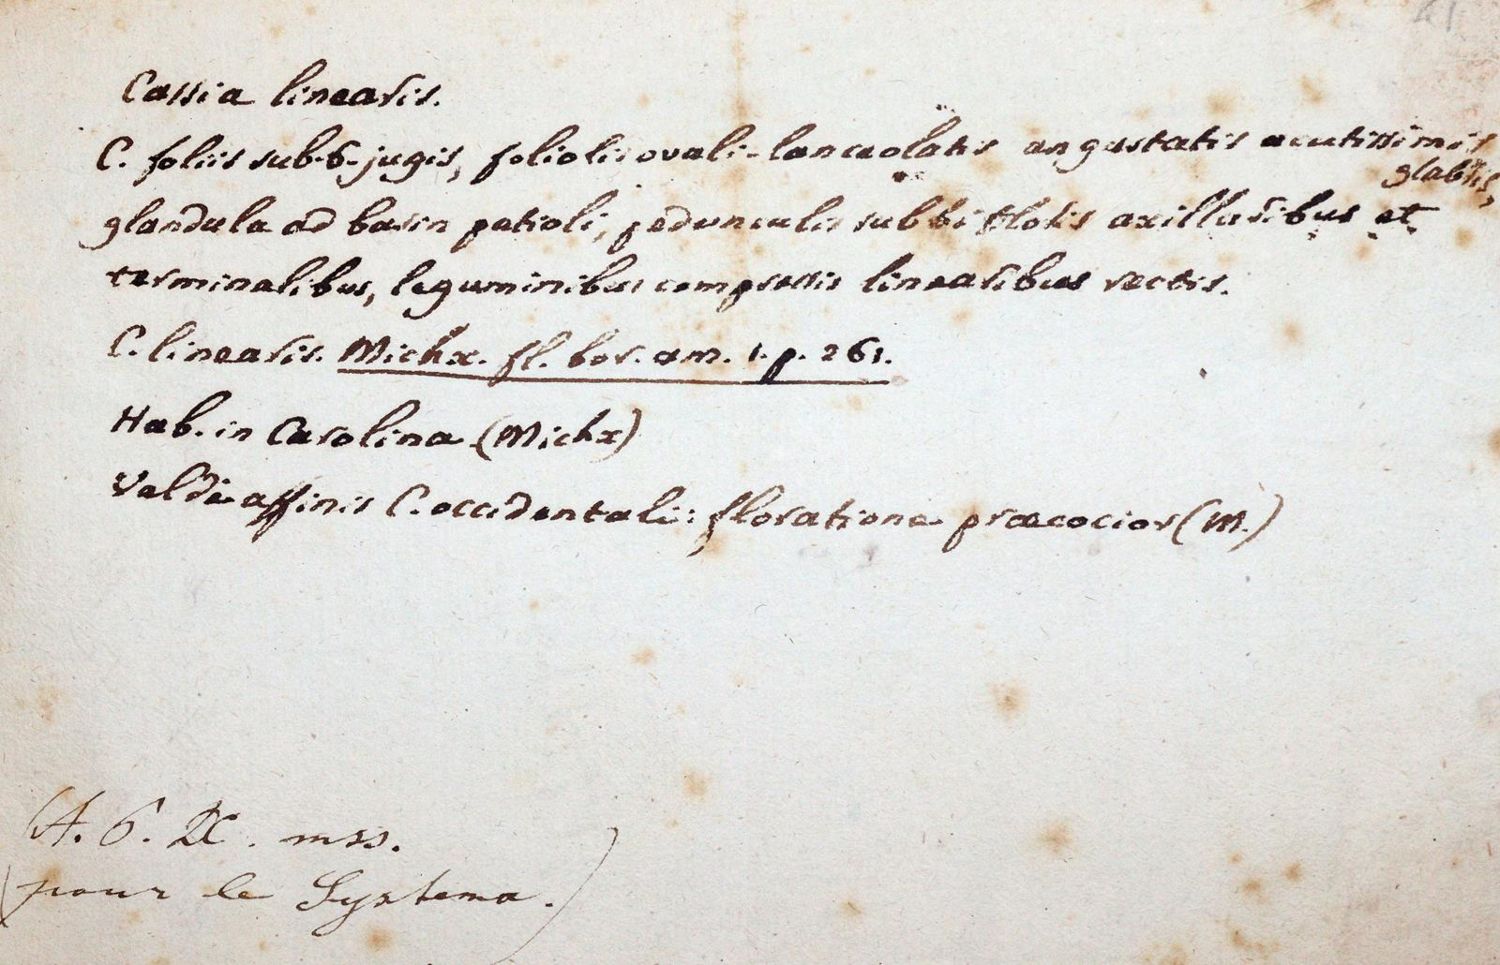 41
Cassia linearis.
C. foliis sub-6-jugis, foliolis ovali-lanceolatis angustatis acutissimis
glabris,
glandula ad basin petioli, pedunculis subbifloris axillaribus et
terminalibus, leguminibus compressis linearibus rectis.
C. linearis. Michx. fl. bor. am. 1. p. 261.
Hab. in Carolina (Michx)
Valdè affinis C. occidentali: floratione præcocior (M.)
(A. P. DC. mss.
(pour le Systema.)